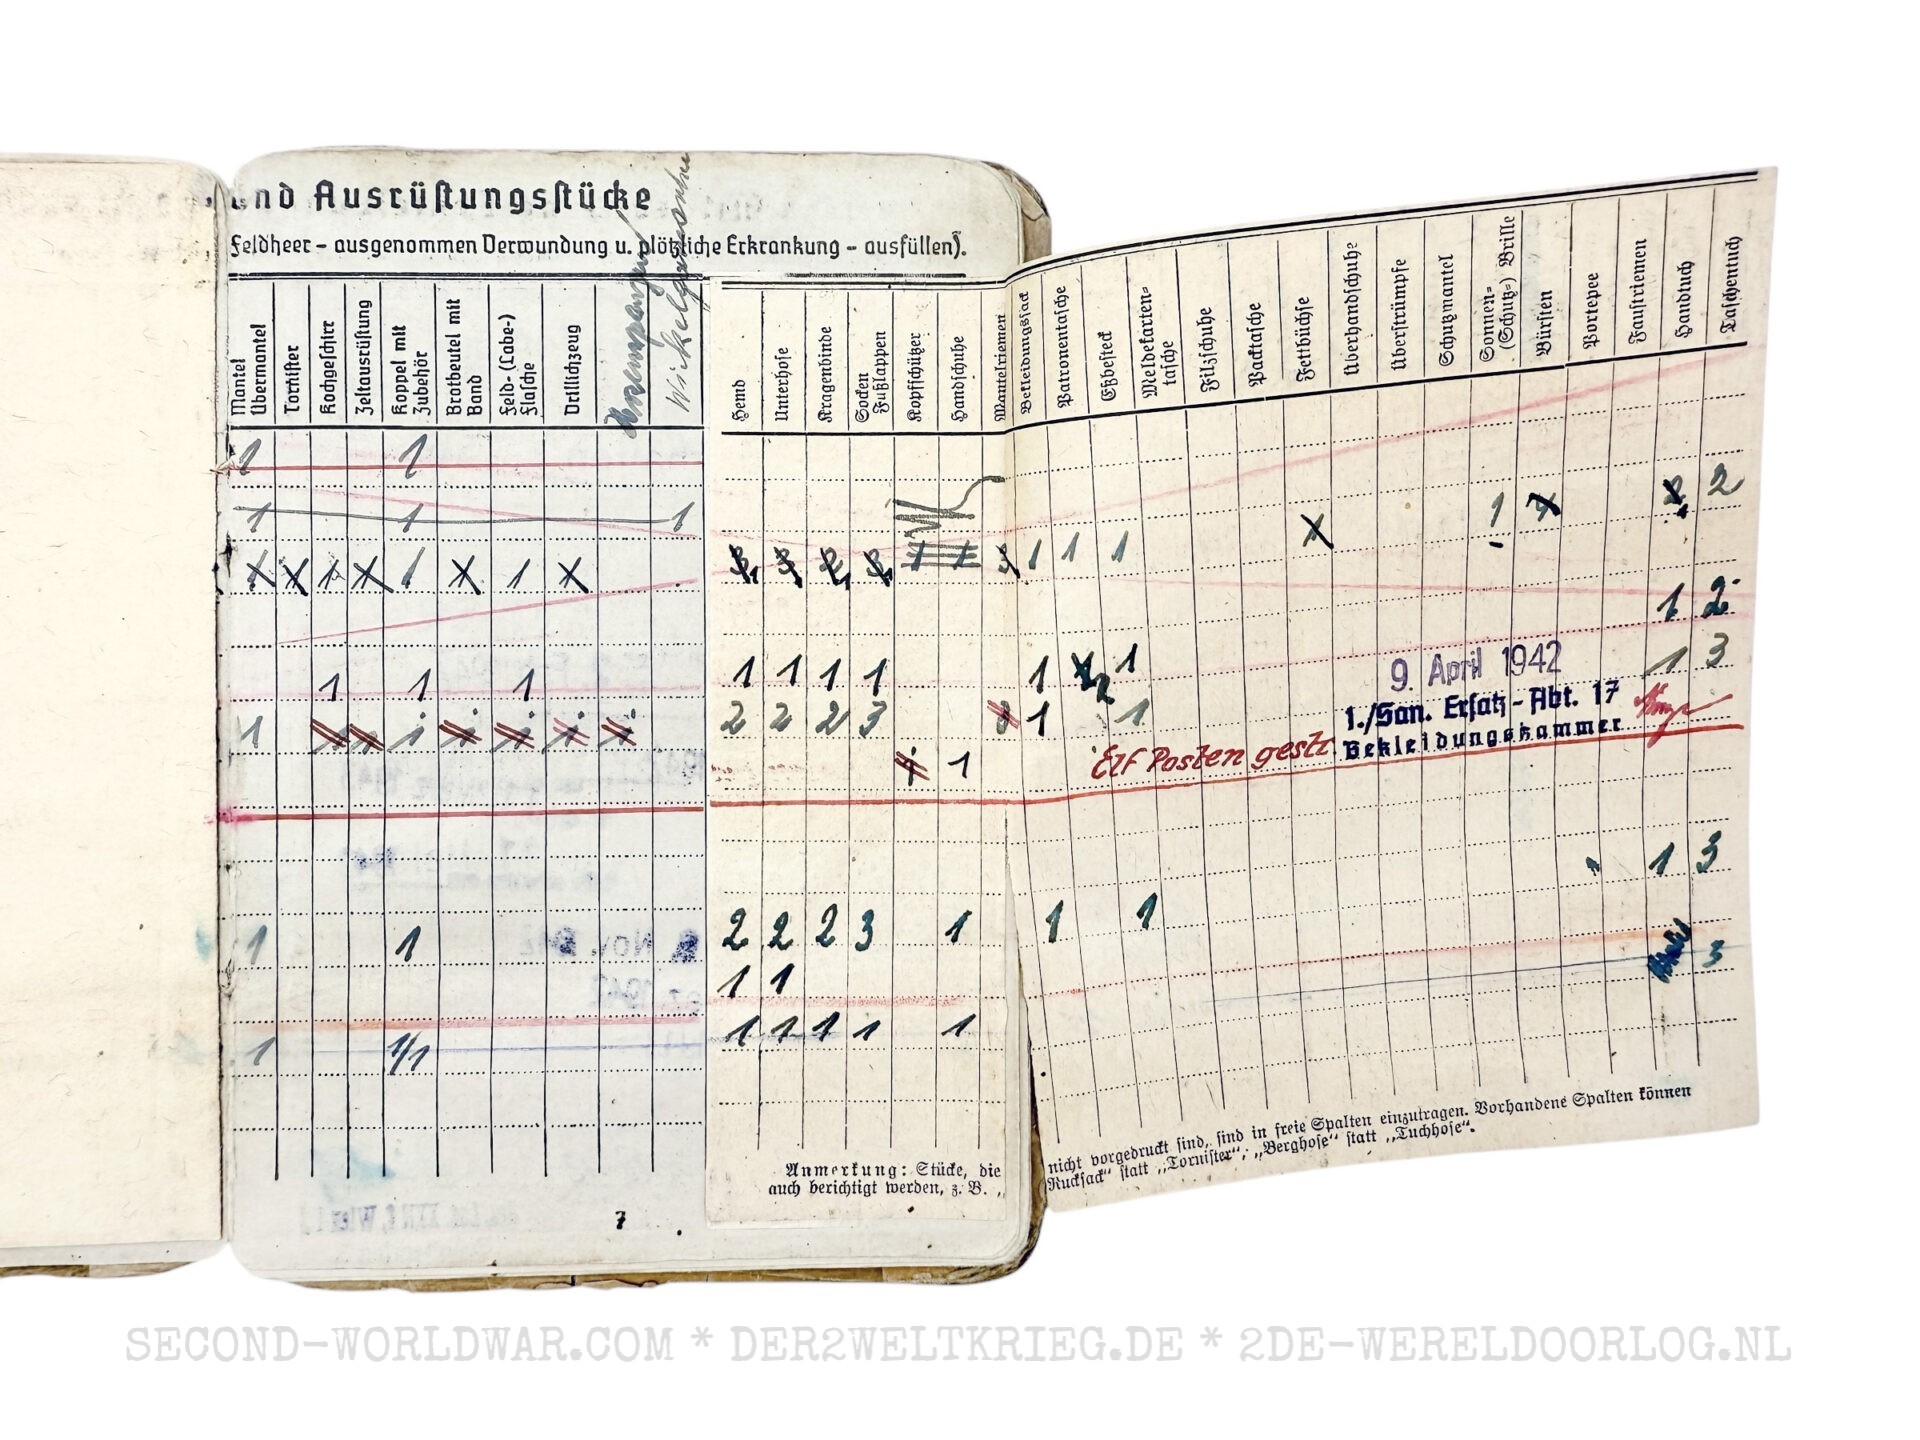 und Ausrüstungsstücke
Feldheer – ausgenommen Verwundung u. plötzliche Erkrankung – ausfüllen).
Mantel
Übermantel
Tornister
Kochgeschirr
Zeltausrüstung
Koppel mit
Zubehör
Brotbeutel mit
Band
Feld- (Labe-)
flasche
Drillichzeug
Wickelgamasche
Hemd
Unterhose
Kragenbinde
Socken
Fußlappen
Kopfschützer
Handschuhe
Mantelriemen
Bekleidungssack
Patronentasche
Eßbesteck
Meldekarten-
tasche
Filzschuhe
Packtasche
Fettbüchse
Überhandschuhe
Überstrümpfe
Schutzmantel
Sonnen-
(Schutz-) Brille
Bürsten
Portepee
Faustriemen
Handtuch
Taschentuch
1 1
1 1 1
1 1 1
1 2
2
1 1 1
1 2
1 1 1 1 1 1 1
1 3
1 2 2 2 3 1 1
9. April 1942
1./San. Ersatz-Abt. 17
Bekleidungskammer
1
Elf Posten gestr.
1 1 2 2 2 3 1 1 1 1 3
1 1
3
1 1/1 1 1 1 1 1
Anmerkung: Stücke, die nicht vorgedruckt sind, sind in freie Spalten einzutragen. Vorhandene Spalten können
auch berichtigt werden, z. B. „Rucksack“ statt „Tornister“, „Berghose“ statt „Tuchhose“.
7
SECOND-WORLDWAR.COM * DER2WELTKRIEG.DE * 2DE-WERELDOORLOG.NL